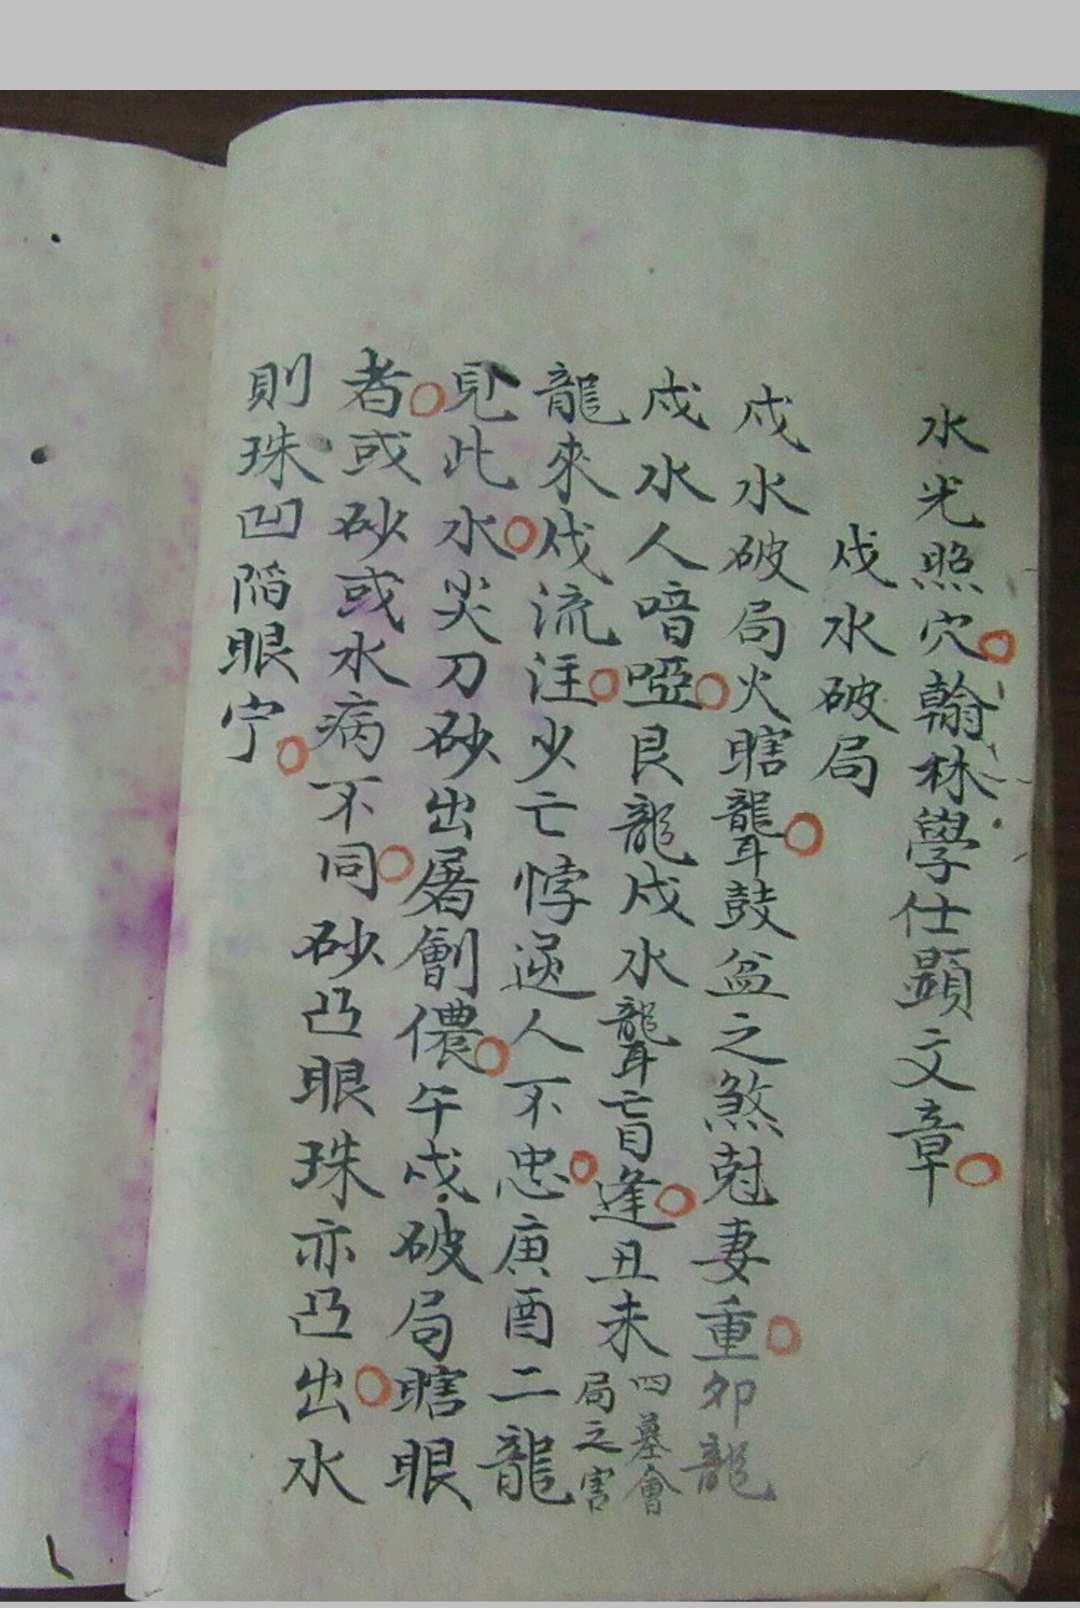 水光照穴翰林學仕顯文章
戌水破局
戌水破局火瞎聾鼓盆之煞尅妻重卯龍
戌水人喑啞艮龍戌水聾盲逢丑未四墓會局之害
龍來戌流注少亡悖逆人不忠庚酉二龍
見此水尖刀砂出屠劊儂午戌破局瞎眼
者或砂或水病不同砂凸眼珠亦凸出水
則珠凹陷眼宁